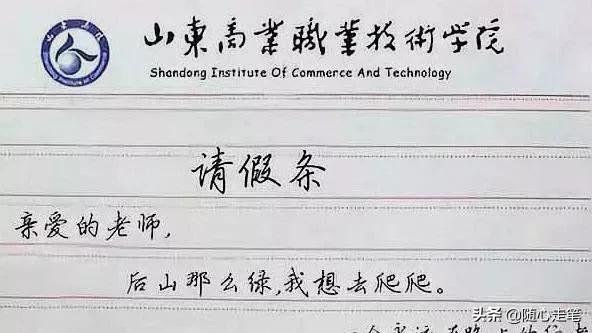 山東商業職業技術学院
Shandong Institute Of Commerce And Technology
请假条
亲爱的老师,
后山那么绿,我想去爬爬。
头条 @随心走笔